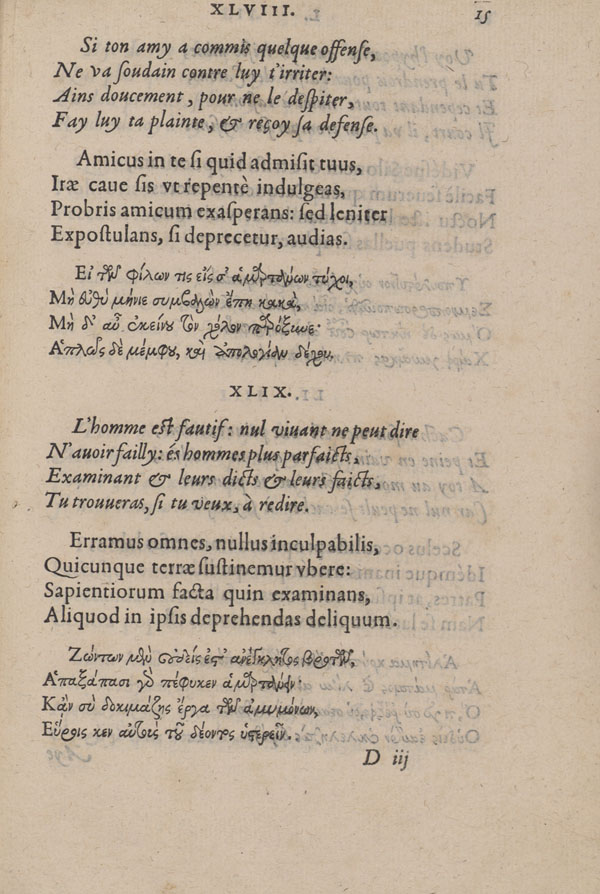 XLVIII. 15
Si ton amy a commis quelque offense,
Ne va soudain contre luy t'irriter:
Ains doucement, pour ne le despiter,
Fay luy ta plainte, & reçoy sa defense.
Amicus in te si quid admisit tuus,
Iræ caue sis vt repentè indulgeas,
Probris amicum exasperans: sed leniter
Expostulans, si deprecetur, audias.
Εἰ τῶν φίλων τις εἰς σ' ἁμαρτάνων τύχοι,
Μὴ εὐθὺ μήνιε συμβαλὼν ἔπη κακὰ,
Μὴ δ' αὖ ἐκείνου τὸν χόλον παρόξυνε·
Ἁπλῶς δὲ μέμφου, καὶ ἀπολογίαν δέχου.
XLIX.
L'homme est fautif: nul viuant ne peut dire
N'auoir failly: és hommes plus parfaicts,
Examinant & leurs dicts & leurs faicts,
Tu trouueras, si tu veux, à redire.
Erramus omnes, nullus inculpabilis,
Quicunque terræ sustinemur vbere:
Sapientiorum facta quin examinans,
Aliquod in ipsis deprehendas deliquum.
Ζώντων μὲν οὐδείς ἐστ' ἀνέγκλητος βροτῶν,
Ἁπαξάπασι γὰρ πέφυκεν ἁμαρτάνειν·
Κἂν σὺ δοκιμάζῃς ἔργα τῶν ἀμυμόνων,
Εὕροις κεν αὐτοὺς τοῦ δέοντος ὑστερεῖν.
D iij